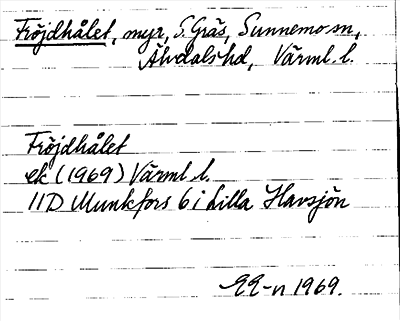 Fröjdhålet, myr, S. Gräs, Sunnemo sn,
Älvdals hd, Värml. l.
Fröjdhålet
ek (1969) Värml l.
11D Munkfors 6 i Lilla Havsjön
1969.